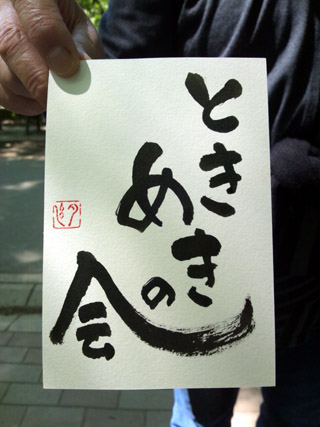 ときめきの会